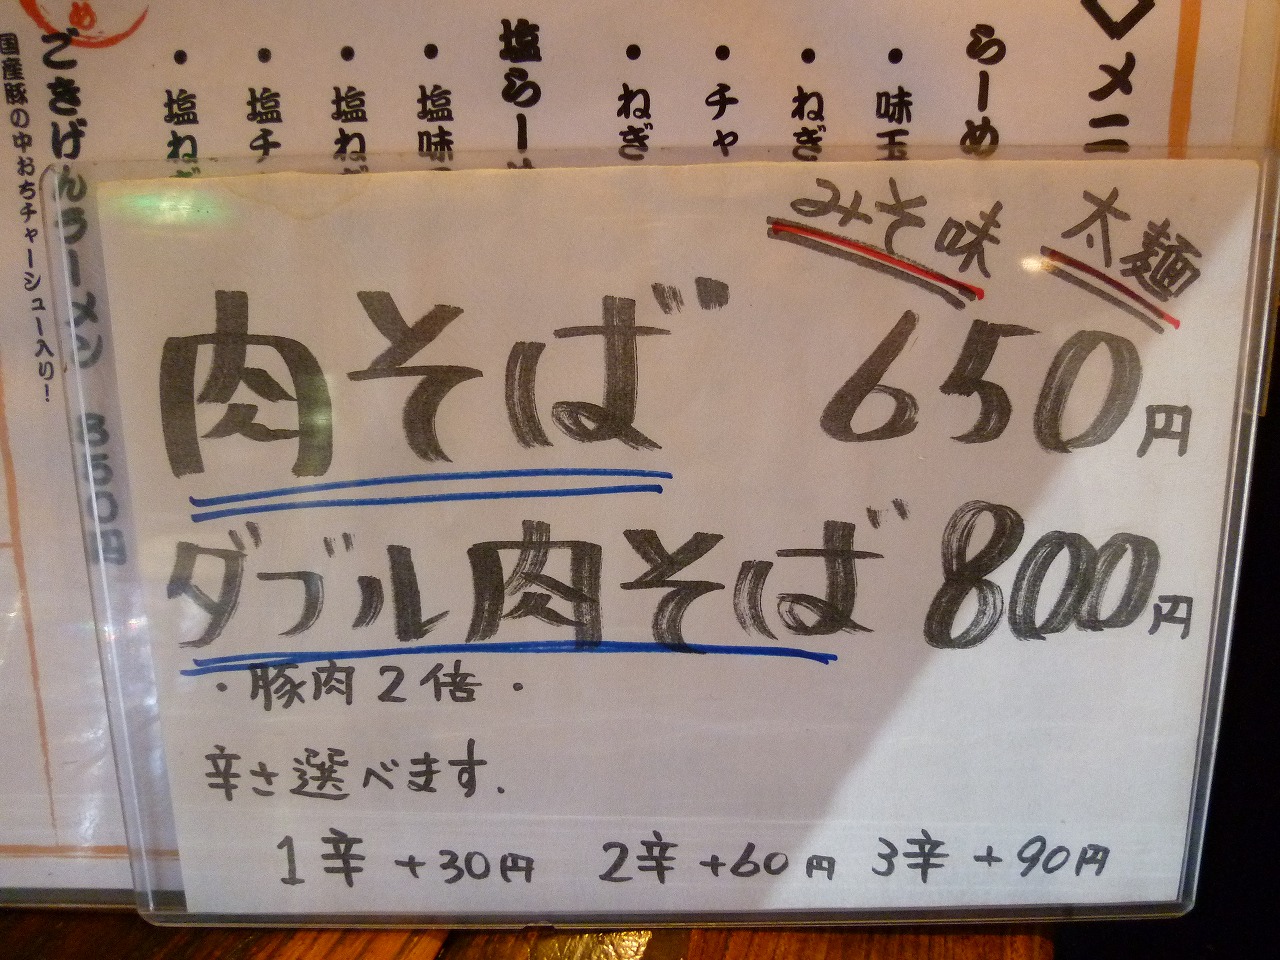 メニ
らーめ
・味玉
・ねぎ
・チャ
・ねぎ
塩らー
・塩味
・塩ね
・塩チ
・塩ねぎ
ごきげんラーメン 850円
国産豚の中おちチャーシュー入り!
め
太麺
みそ味
肉そば 650円
ダブル肉そば 800円
・豚肉2倍・
辛さ選べます.
1辛 +30円 2辛 +60円 3辛 +90円